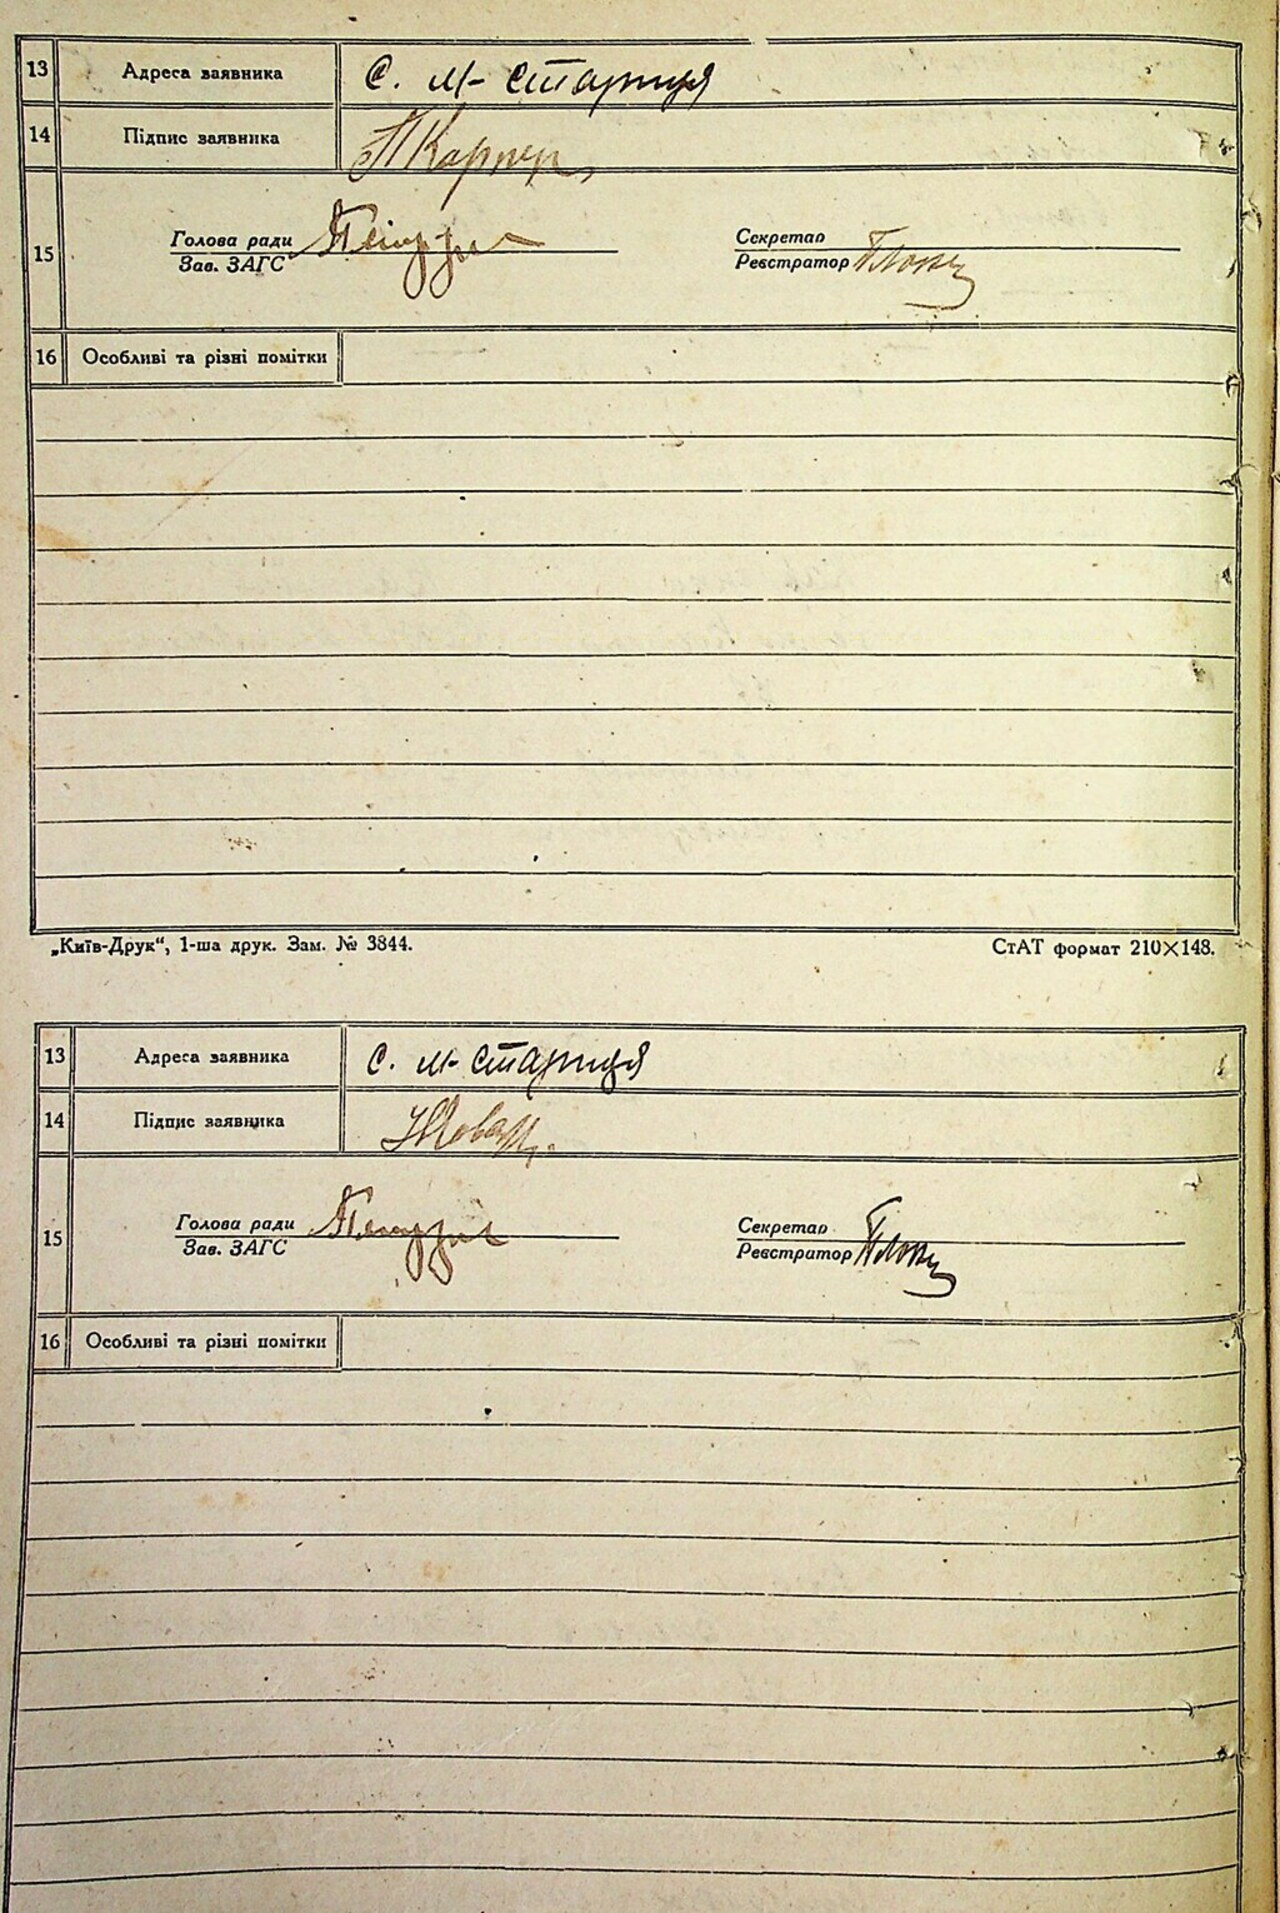 13 Адреса заявника с. м-стариця
14 Підпис заявника
15 Голова ради
Зав. ЗАГС
Секретар
Реєстратор
16 Особливі та різні помітки
„Київ-Друк“, 1-ша друк. Зам. № 3844. СтАТ формат 210×148.
13 Адреса заявника с. м-стариця
14 Підпис заявника
15 Голова ради
Зав. ЗАГС
Секретар
Реєстратор
16 Особливі та різні помітки